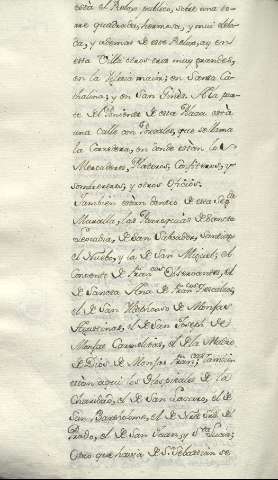 está el Relox publico, sobre una to-
rre quadrada, hermosa, y mui alta-
da, y ademas de este Relox, ay en
esta Villa otros tres muy grandes,
en la Yglesia maior; en Santa Ca-
thalina; y en San Ginés. A la par-
te del Poniente de esta Plaza está
una calle con Portales, que se llama
la Corredera, en donde están los
Mercaderes, Plateros, Confiteros, y
sombrereros, y otros oficios.
Tambien están dentro de esta segda
Muralla, las Parroquias de Sancta
Leocadia, de San Salvador, Santiago
el Nuebo, y la de San Miguel; el
Convento de Francos Observantes, el
de Sancta Ana de Francos Descalzos,
el de San Ildefonso de Monjas
Agustinas, el de San Joseph de
Monjas Carmelitas, el de la Madre
de Dios de Monjas Francas; tambien
están aqui los Hospitales de la
Charidad, el de San Lazaro, el de
San Bartholome, el de Nra Sra del
Prado, el de San Juan y Sta Lucia;
Otro que havia de Sn Sebastian se